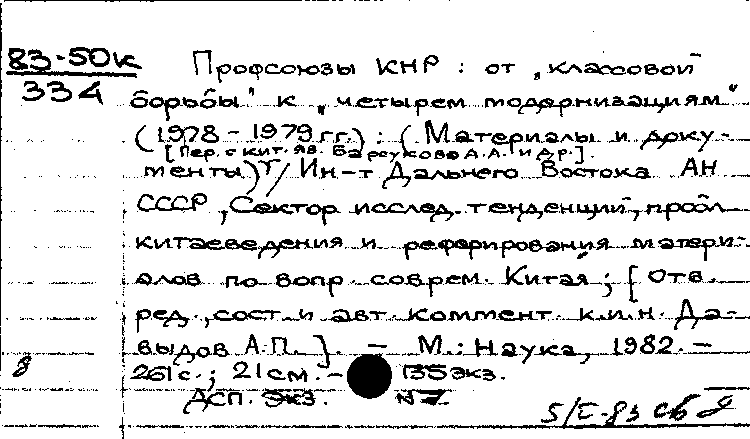 83-50к
334
Профсоюзы КНР : от „классовой
борьбы" к „четырем модернизациям"
(1978 - 1979 гг.) : (Материалы и доку-
[Пер. с кит. яз. Барсукова А.А. и др.].
менты) / Ин-т Дальнего Востока АН
СССР, Сектор исслед. тенденций, пробл
китаеведения и реферирования матери-
алов по вопр. соврем. Китая ; [Отв.
ред., сост. и авт. коммент. к.и.н. Да-
выдов А.П.]. - М.: Наука, 1982. -
8
261 с. ; 21 см. - 135 экз.
ДСП. Экз. N 7.
5/I-83